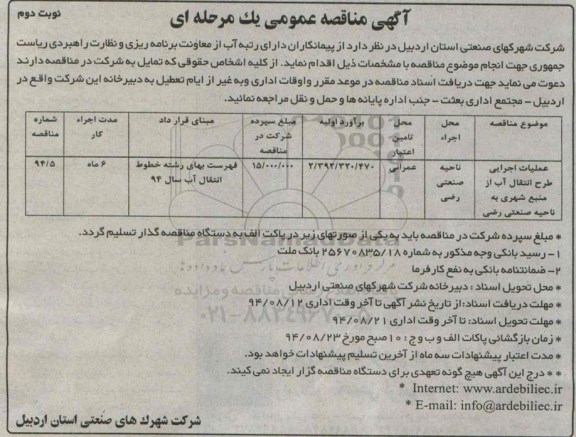 آگهی مناقصه عمومی یك مرحله ای
نوبت دوم
شرکت شهرکهای صنعتی استان اردبیل در نظر دارد از پیمانکاران دارای رتبه آب از معاونت برنامه ریزی و نظارت راهبردی ریاست
جمهوری جهت انجام موضوع مناقصه با مشخصات ذیل اقدام نماید. از کلیه اشخاص حقوقی که تمایل به شرکت در مناقصه دارند
دعوت می نماید جهت دریافت اسناد مناقصه در موعد مقرر و اوقات اداری و به غیر از ایام تعطیل به دبیرخانه این شرکت واقع در
اردبیل - مجتمع اداری بعثت - جنب اداره پایانه ها و حمل و نقل مراجعه نمائید.
موضوع مناقصه | محل اجراء | محل تامین اعتبار | برآورد اولیه | مبلغ سپرده شرکت در مناقصه | مبنای قرار داد | مدت اجراء کار | شماره مناقصه
عملیات اجرایی طرح انتقال آب از منبع شهری به ناحیه صنعتی رضی | ناحیه صنعتی رضی | عمرانی | ۲/۳۹۲/۳۲۰/۴۷۰ | ۱۵/۰۰۰/۰۰۰ | فهرست بهای رشته خطوط انتقال آب سال ۹۴ | ۶ ماه | ۹۴/۵
* مبلغ سپرده شرکت در مناقصه باید به یکی از صورتهای زیر در پاکت الف به دستگاه مناقصه گذار تسلیم گردد.
۱- رسید بانکی وجه مذکور به شماره ۲۵۶۷۰۸۳۵/۱۸ بانک ملت
۲- ضمانتنامه بانکی به نفع کارفرما
* محل تحویل اسناد : دبیرخانه شرکت شهرکهای صنعتی اردبیل
* مهلت دریافت اسناد: از تاریخ نشر آگهی تا آخر وقت اداری ۹۴/۰۸/۱۲
* مهلت تحویل اسناد: تا آخر وقت اداری ۹۴/۰۸/۲۱
* زمان بازگشائی پاکات الف و ب و ج : ۱۰ صبح مورخ ۹۴/۰۸/۲۳
* مدت اعتبار پیشنهادات سه ماه از آخرین تسلیم پیشنهادات خواهد بود.
* * درج این آگهی هیچ گونه تعهدی برای دستگاه مناقصه گزار ایجاد نمی کند.
* Internet: www.ardebiliec.ir
* E-mail: info@ardebiliec.ir
شرکت شهرك های صنعتی استان اردبیل
ParsNamadData
۰۲۱-۸۸۳۴۹۶۷۰-۵